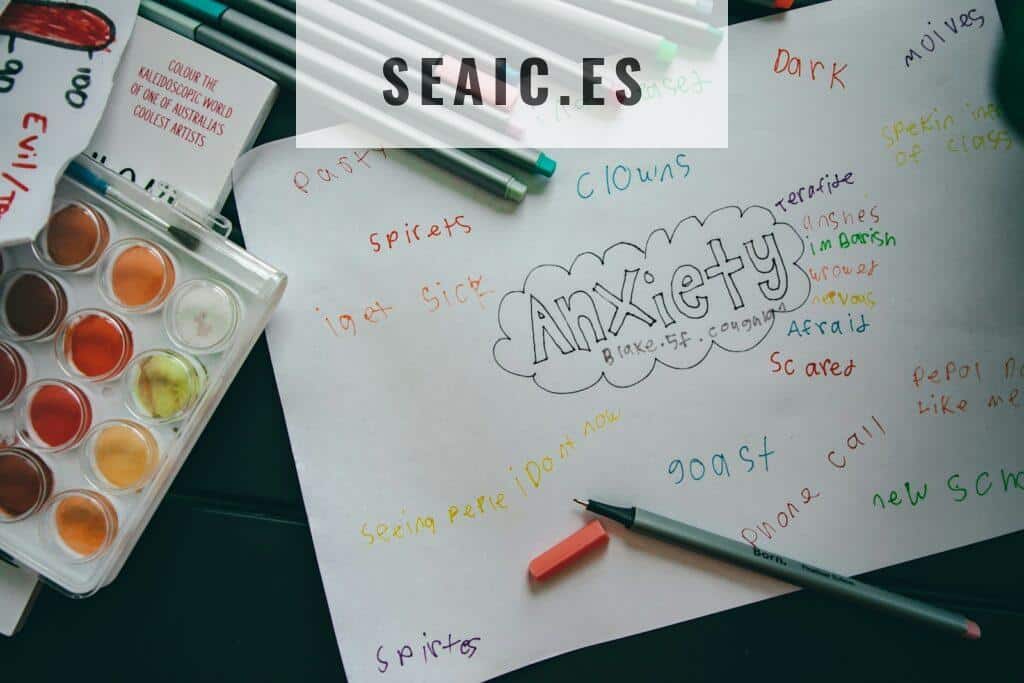 SEAIC.ES
COLOUR THE
KALEIDOSCOPIC WORLD
OF ONE OF AUSTRALIA'S
COOLEST ARTISTS
100
90
Evil/
Dark
moives
party
clowns
spekin
of class
spirets
Terafide
anshes
imBarish
iget sick
Anxiety
Blake.5f.
nervous
Afraid
Scared
pepol
Like me
seeing peple iDont now
goast
phone call
new
Born.
spirtes